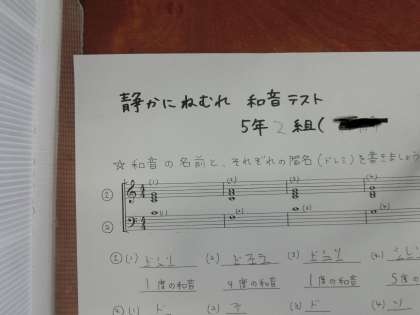 静かにねむれ 和音テスト
5年2組(
☆和音の名前と、それぞれの階名(ドレミ)を書きましょう
① (1) (2) (3) (4)
② (1) (2) (3) (4)
① (1) ドミソ (2) ドファラ (3) ドミソ (4)
1度の和音 4度の和音 1度の和音 5度の
② (1) ド (2) (3) ド (4) ソ